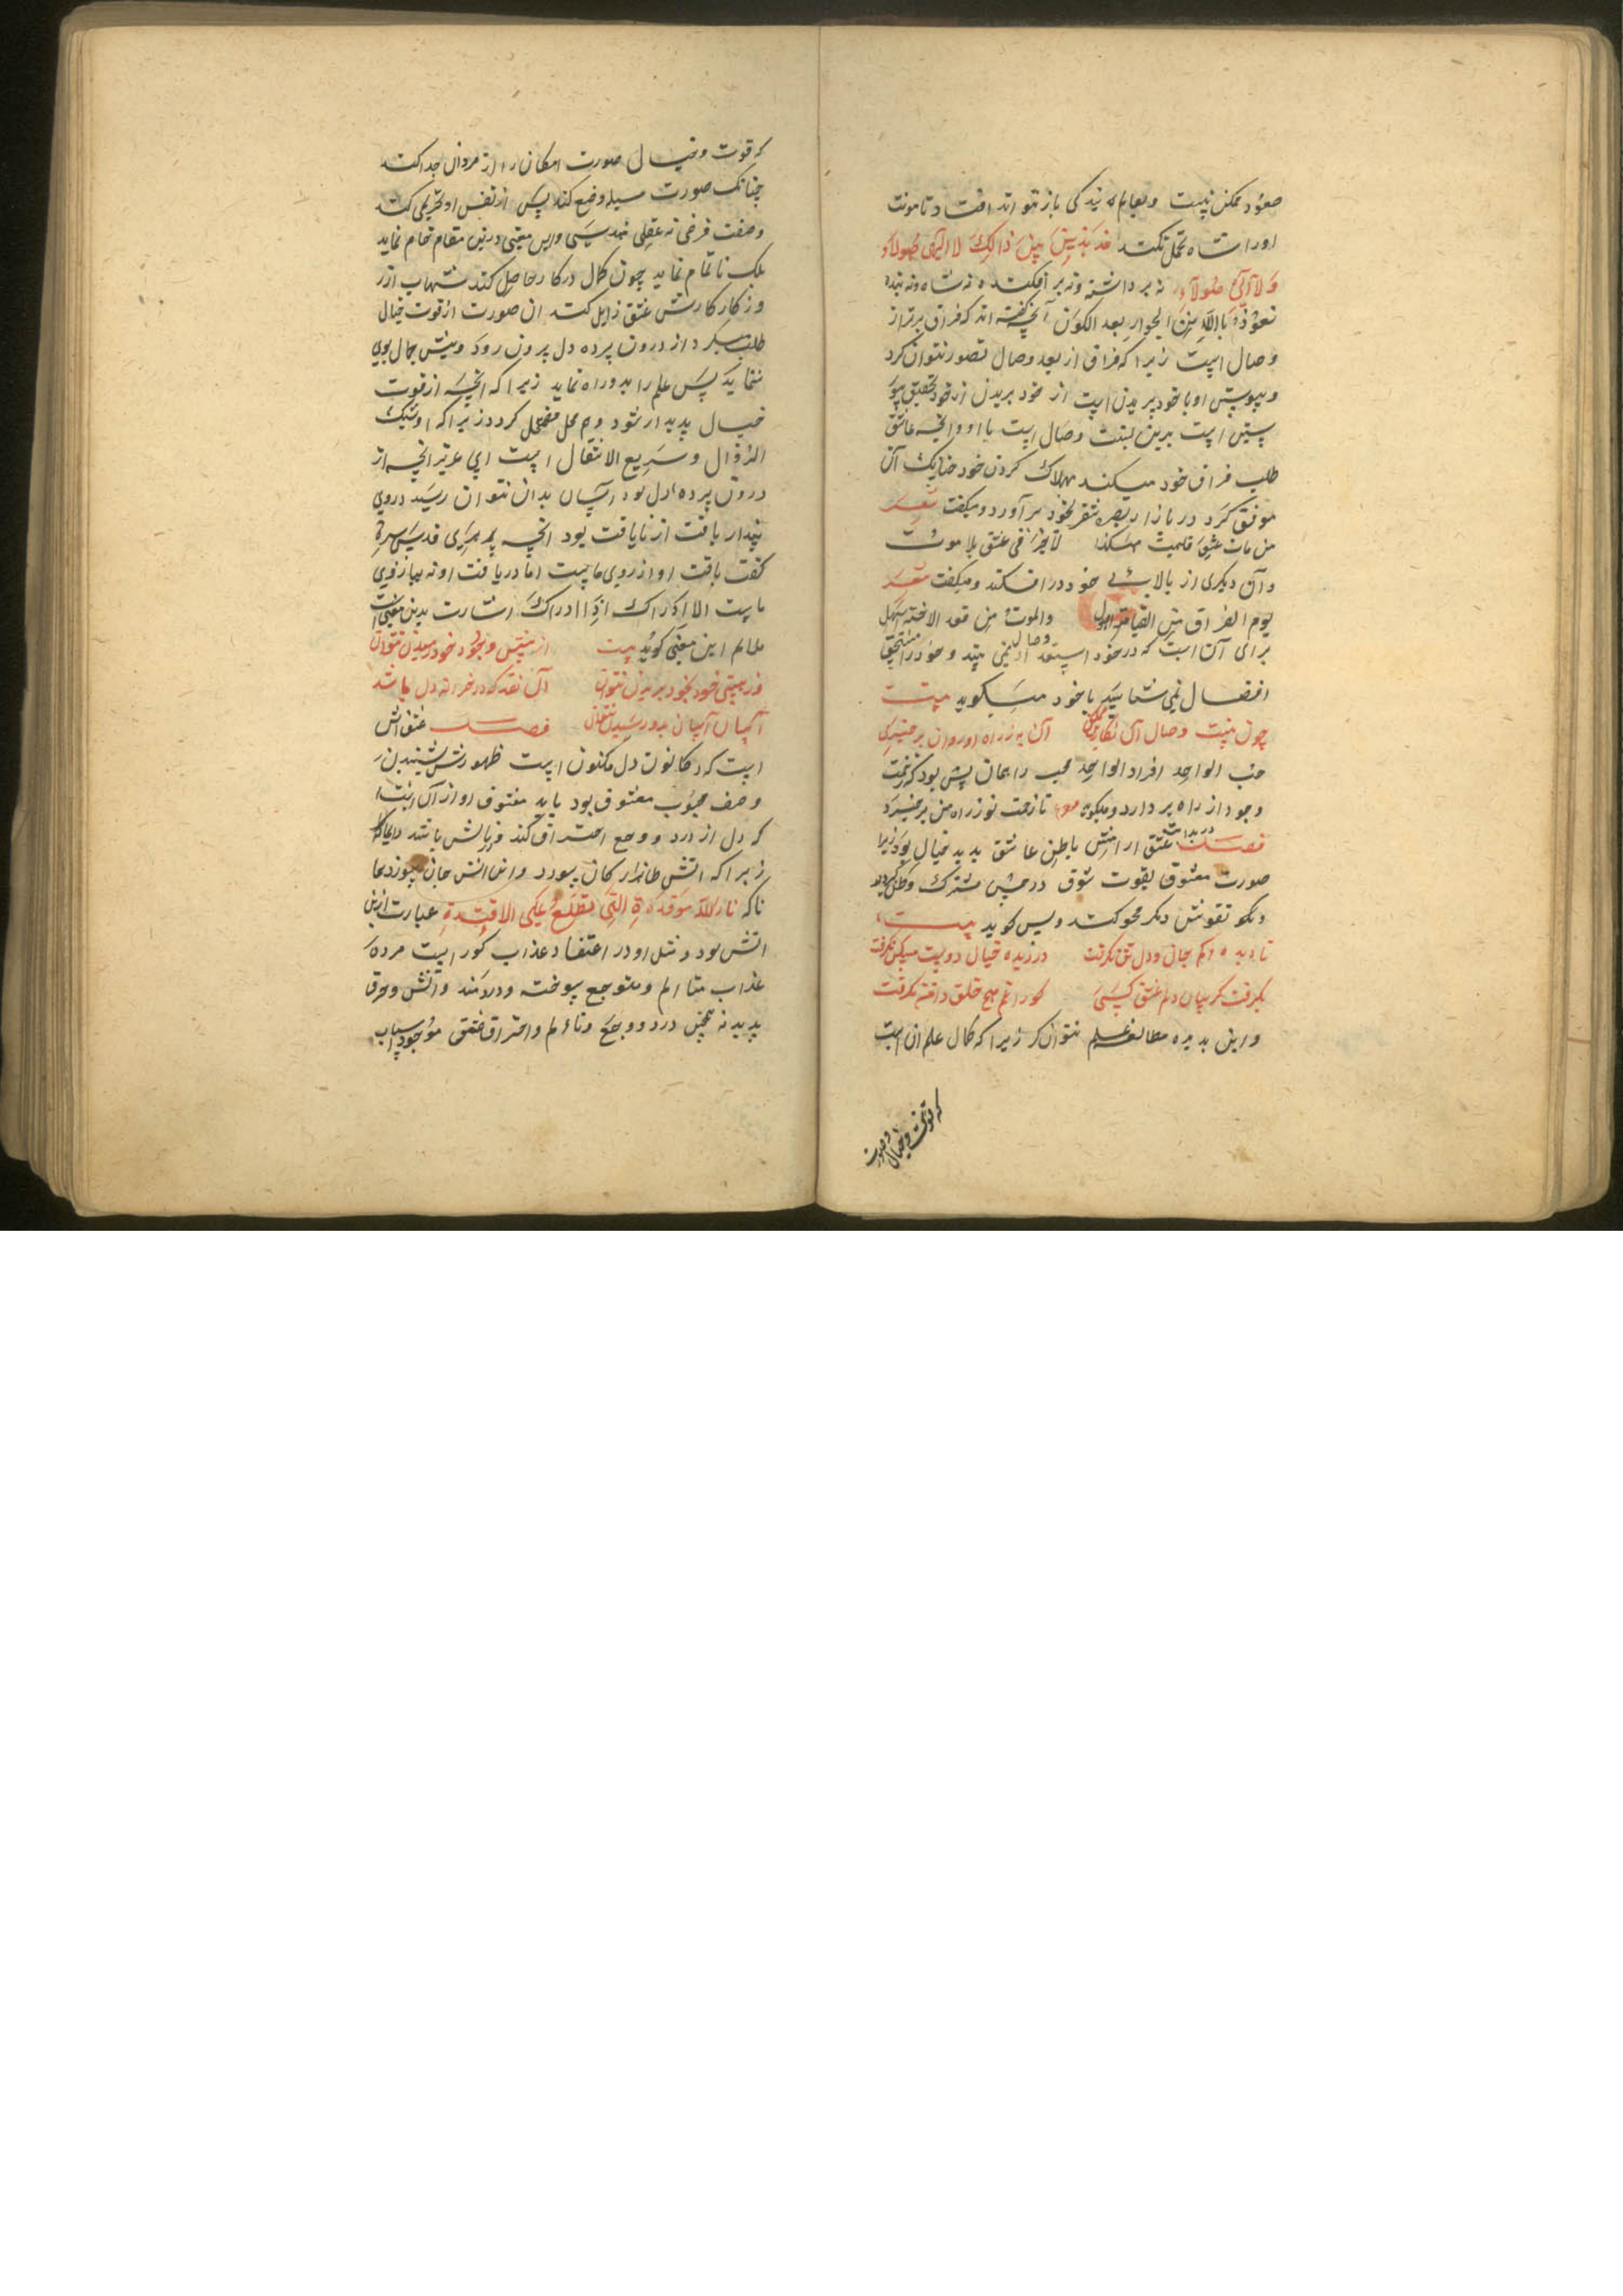 صعود ممکن نیست و بعالم که نیز کی باز تواند افتاد تا مونت
او را شاه تحمل نکند مذبذبین بین ذالک لا الی هولاء
ولا الی هولاء نه برداشته و نه بر افکنده نه شاه و نه بنده
نعوذ باالله من الجوار بعد الکون آنچه گفته اند که فراق برتر از
وصال است زیرا که فراق از بعد وصال تصور نتوان کرد
و پیوستن او با خود بریدن است از خود بریدن از خود تحقیق پیو
ستن است برین نسبت وصال است با او و آنچه عاشق
طلب فراق خود میکند بهلاک کردن خود چنانک آن
موفق کرد در بازار بصره نفر بخود بر آورد و میگفت شعر
من مات عشق فلیمت هکذا لا خیر فی عشق بلا موت
و آن دیگری از بالا بی خود در افکند و میگفت شعر
یوم الفراق من القیامة اهول والموت من فقد الاحبة اسهل
برای آن است که در خود استعداد وصال نمی بیند و خود را مستحق
اتصال نمی شناسد با خود میگوید بیت
چون نیست وصال آن نگار ممکن آن به ز راه او روان برخیزی
حب الواحد افراد الواحد محب را همان بیش بود که زحمت
وجود از راه بر دارد و میگوید مصر تا زحمت تو ز راه من برخیزد
فصل در بدایت عشق آرامش باطن عاشق بدید خیال بود زیرا
صورت معشوق بقوت شوق در حس مشترک
و نقوش دیگر محو کند و پس گوید بیت
تا دیده دلم بجان و دل نگرفت در دیده خیال دوست مسکن نگرفت
بگرفت گریبان دلم عشق کسی کو را غم هیچ خلق دامن نگرفت
و این بدیده مطالعه علم نتوان کرد زیرا که کمال علم آن است
که قوت وخیال وصورت
که قوت و خیال صورت امکان را از مردان جدا کند
چنانک صورت سیله وضع کند پس از نفس او کند
وصفت فرضی نه عقلی نه حسی و این معنی درین مقام تمام نماید
بلک ناتمام نماید چون کمال در کار حاصل کند شهاب از
و ز کار کارش عشق زایل کند آن صورت از قوت خیال
طلب میکرد از درون پرده دل برون رود و بیش جمال بوی
ننماید پس علم را بدو راه نماید زیرا که آنچه از قوت
خیال پدیدار شود و هم محل مضمحل گردد زیرا که او شیک
الزوال و سریع الانتقال است ای عزیز آنچه از
درون پرده دل بود آسان بدان نتوان رسید در وی
پندار یافت از نایافت بود آنچه قدس سره
گفت یافت او از روی ماست اما دریافت او نه ببازوی
ماست الا ادراک اذا ادراک اشارت بدین معنی است
ملایم این معنی گوید بیت از هستی وجود خود رمیدن نتوان
وز هستی خود بخود بریدن نتوان آن نقد که در خزانه دل باشد
آسان آسان بدو رسیدن نتوان فصل عشق آتش
است که در کانون دل مکنون است ظهورش شنیدن
وصف محبوب معشوق بود باید معشوق او از آن است
که دل از درد و وجع احتراق کند
زیرا که آتش ظاهر ارکان سوزد و این آتش جان سوزد
ناکه نار الله موقدة التی تطلع علی الافئدة عبارت ازین
آتش بود و مثل او در اعتقاد عذاب گور است مرده
عذاب متالم و متوجع سوخته و دردمند و آتش و حرق
پدید نه همچنین درد و وجع و تاءلم و احتراق عشق موجود اسباب